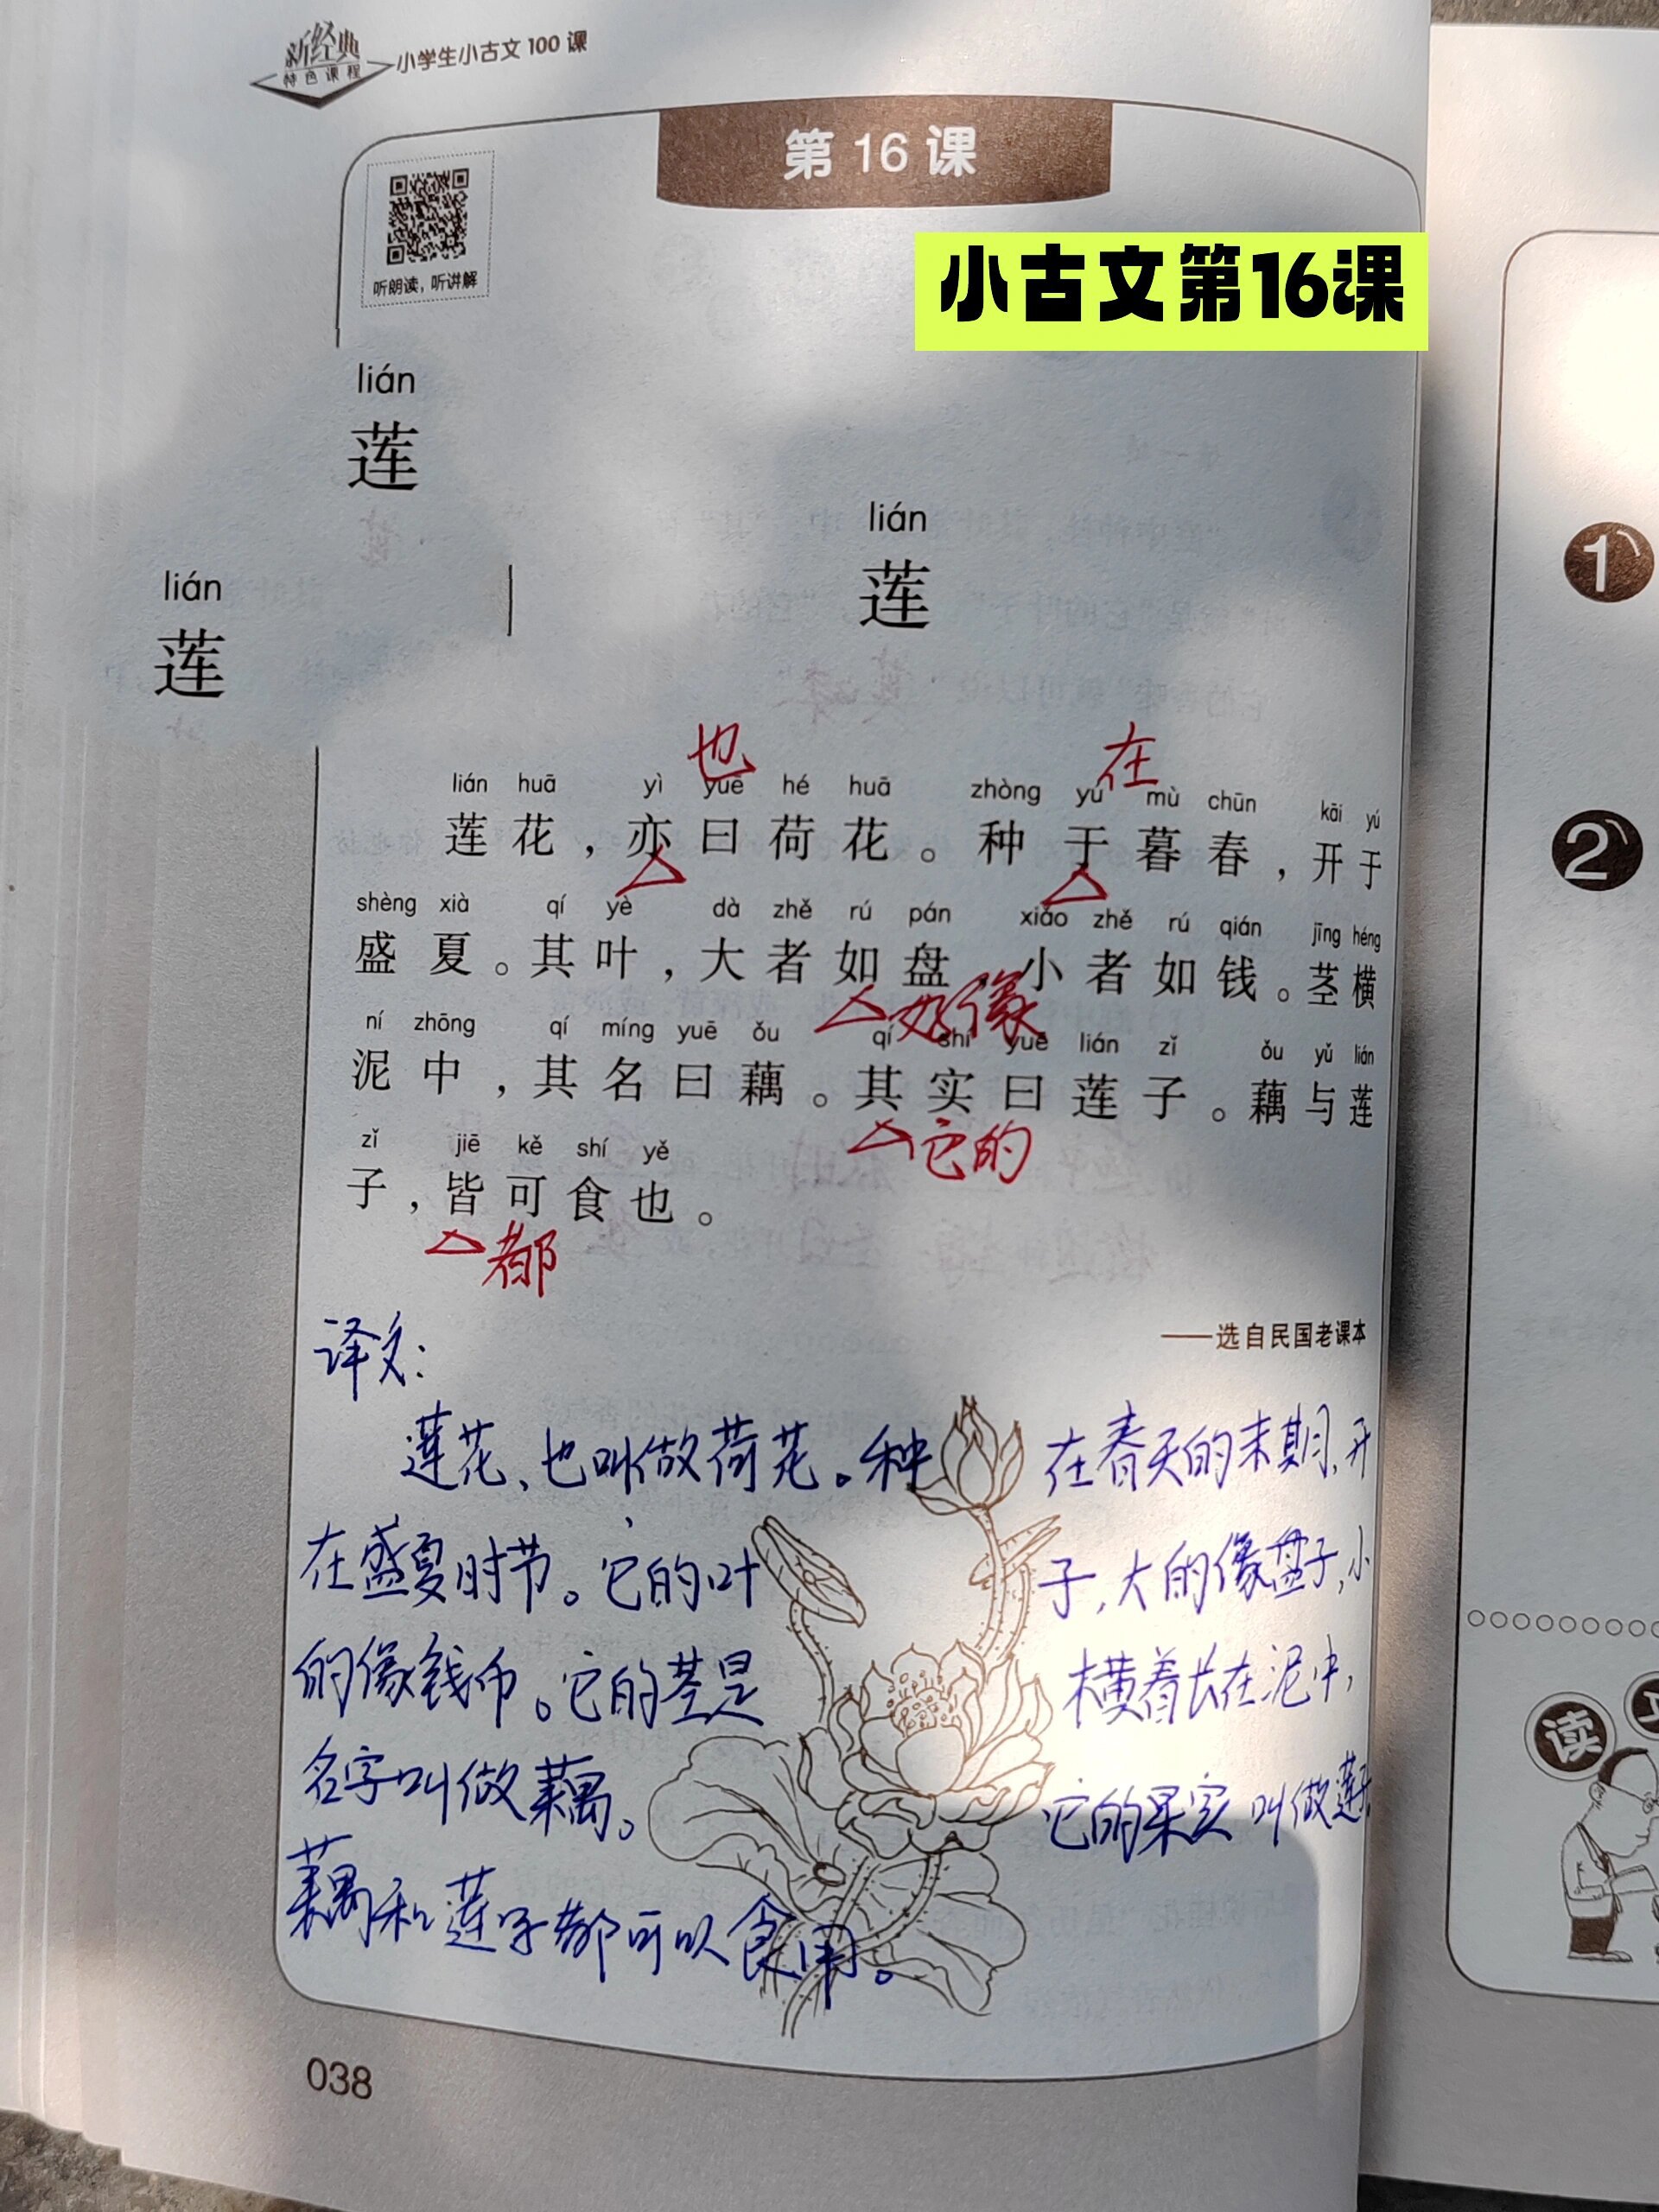 新经典
特色课程
小学生小古文100课
第16课
听朗读，听讲解
小古文第16课
lián
莲
lián
莲
lián
莲
也 在
lián huā yì yuē hé huā zhòng yú mù chūn kāi yú
莲花，亦曰荷花。种于暮春，开于
shèng xià qí yè dà zhě rú pán xiǎo zhě rú qián jīng héng
盛夏。其叶，大者如盘，小者如钱。茎横
好像
ní zhōng qí míng yuē ǒu qí shí yuē lián zǐ ǒu yǔ lián
泥中，其名曰藕。其实曰莲子。藕与莲
它的
zǐ jiē kě shí yě
子，皆可食也。
都
——选自民国老课本
译文：
莲花、也叫做荷花。种在春天的末期，开
在盛夏时节。它的叶子，大的像盘子，小
的像钱币。它的茎是横着长在泥中，
名字叫做藕。它的果实叫做莲子。
藕和莲子都可以食用。
038
1
2
读